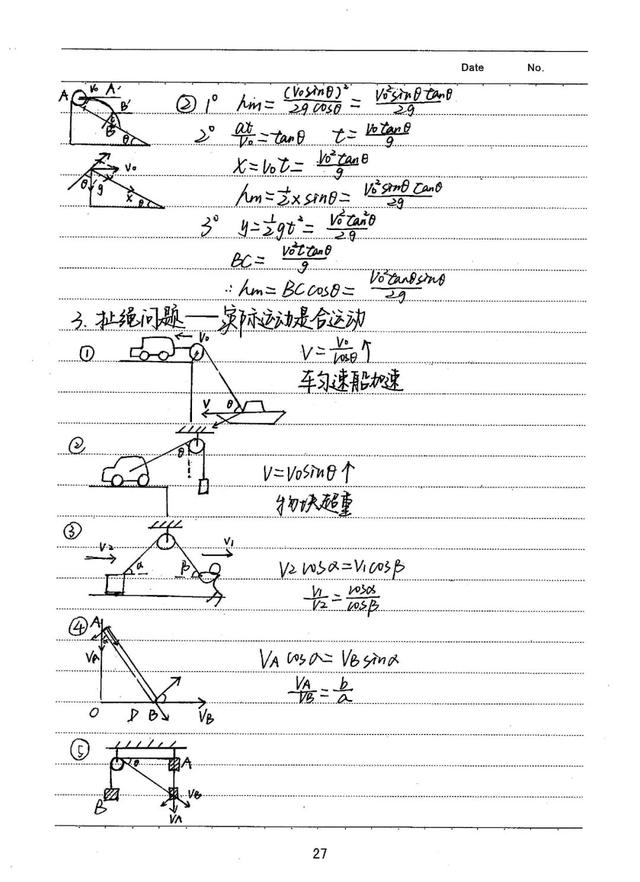 Date No.
A V₀ A' B' B θ
② 1° hm = (V₀sinθ)²/2gcosθ = V₀²sinθtanθ/2g
2° at/V₀ = tanθ t = V₀tanθ/g
θ g V₀ x θ
x = V₀t = V₀²tanθ/g
hm = ½xsinθ = V₀²sinθtanθ/2g
3° y = ½gt² = V₀²tan²θ/2g
BC = V₀t tanθ/g
∴ hm = BCcosθ = V₀²tanθsinθ/2g
3. 扯绳问题——实际运动是合运动
① V₀ V θ
V = V₀/cosθ ↑
车匀速船加速
② θ
V = V₀sinθ ↑
物块超重
③ V₂ V₁ α β
V₂cosα = V₁cosβ
V₁/V₂ = cosα/cosβ
④ A VA O D B VB
VAcosα = VBsinα
VA/VB = b/a
⑤ θ A B VB VA
27